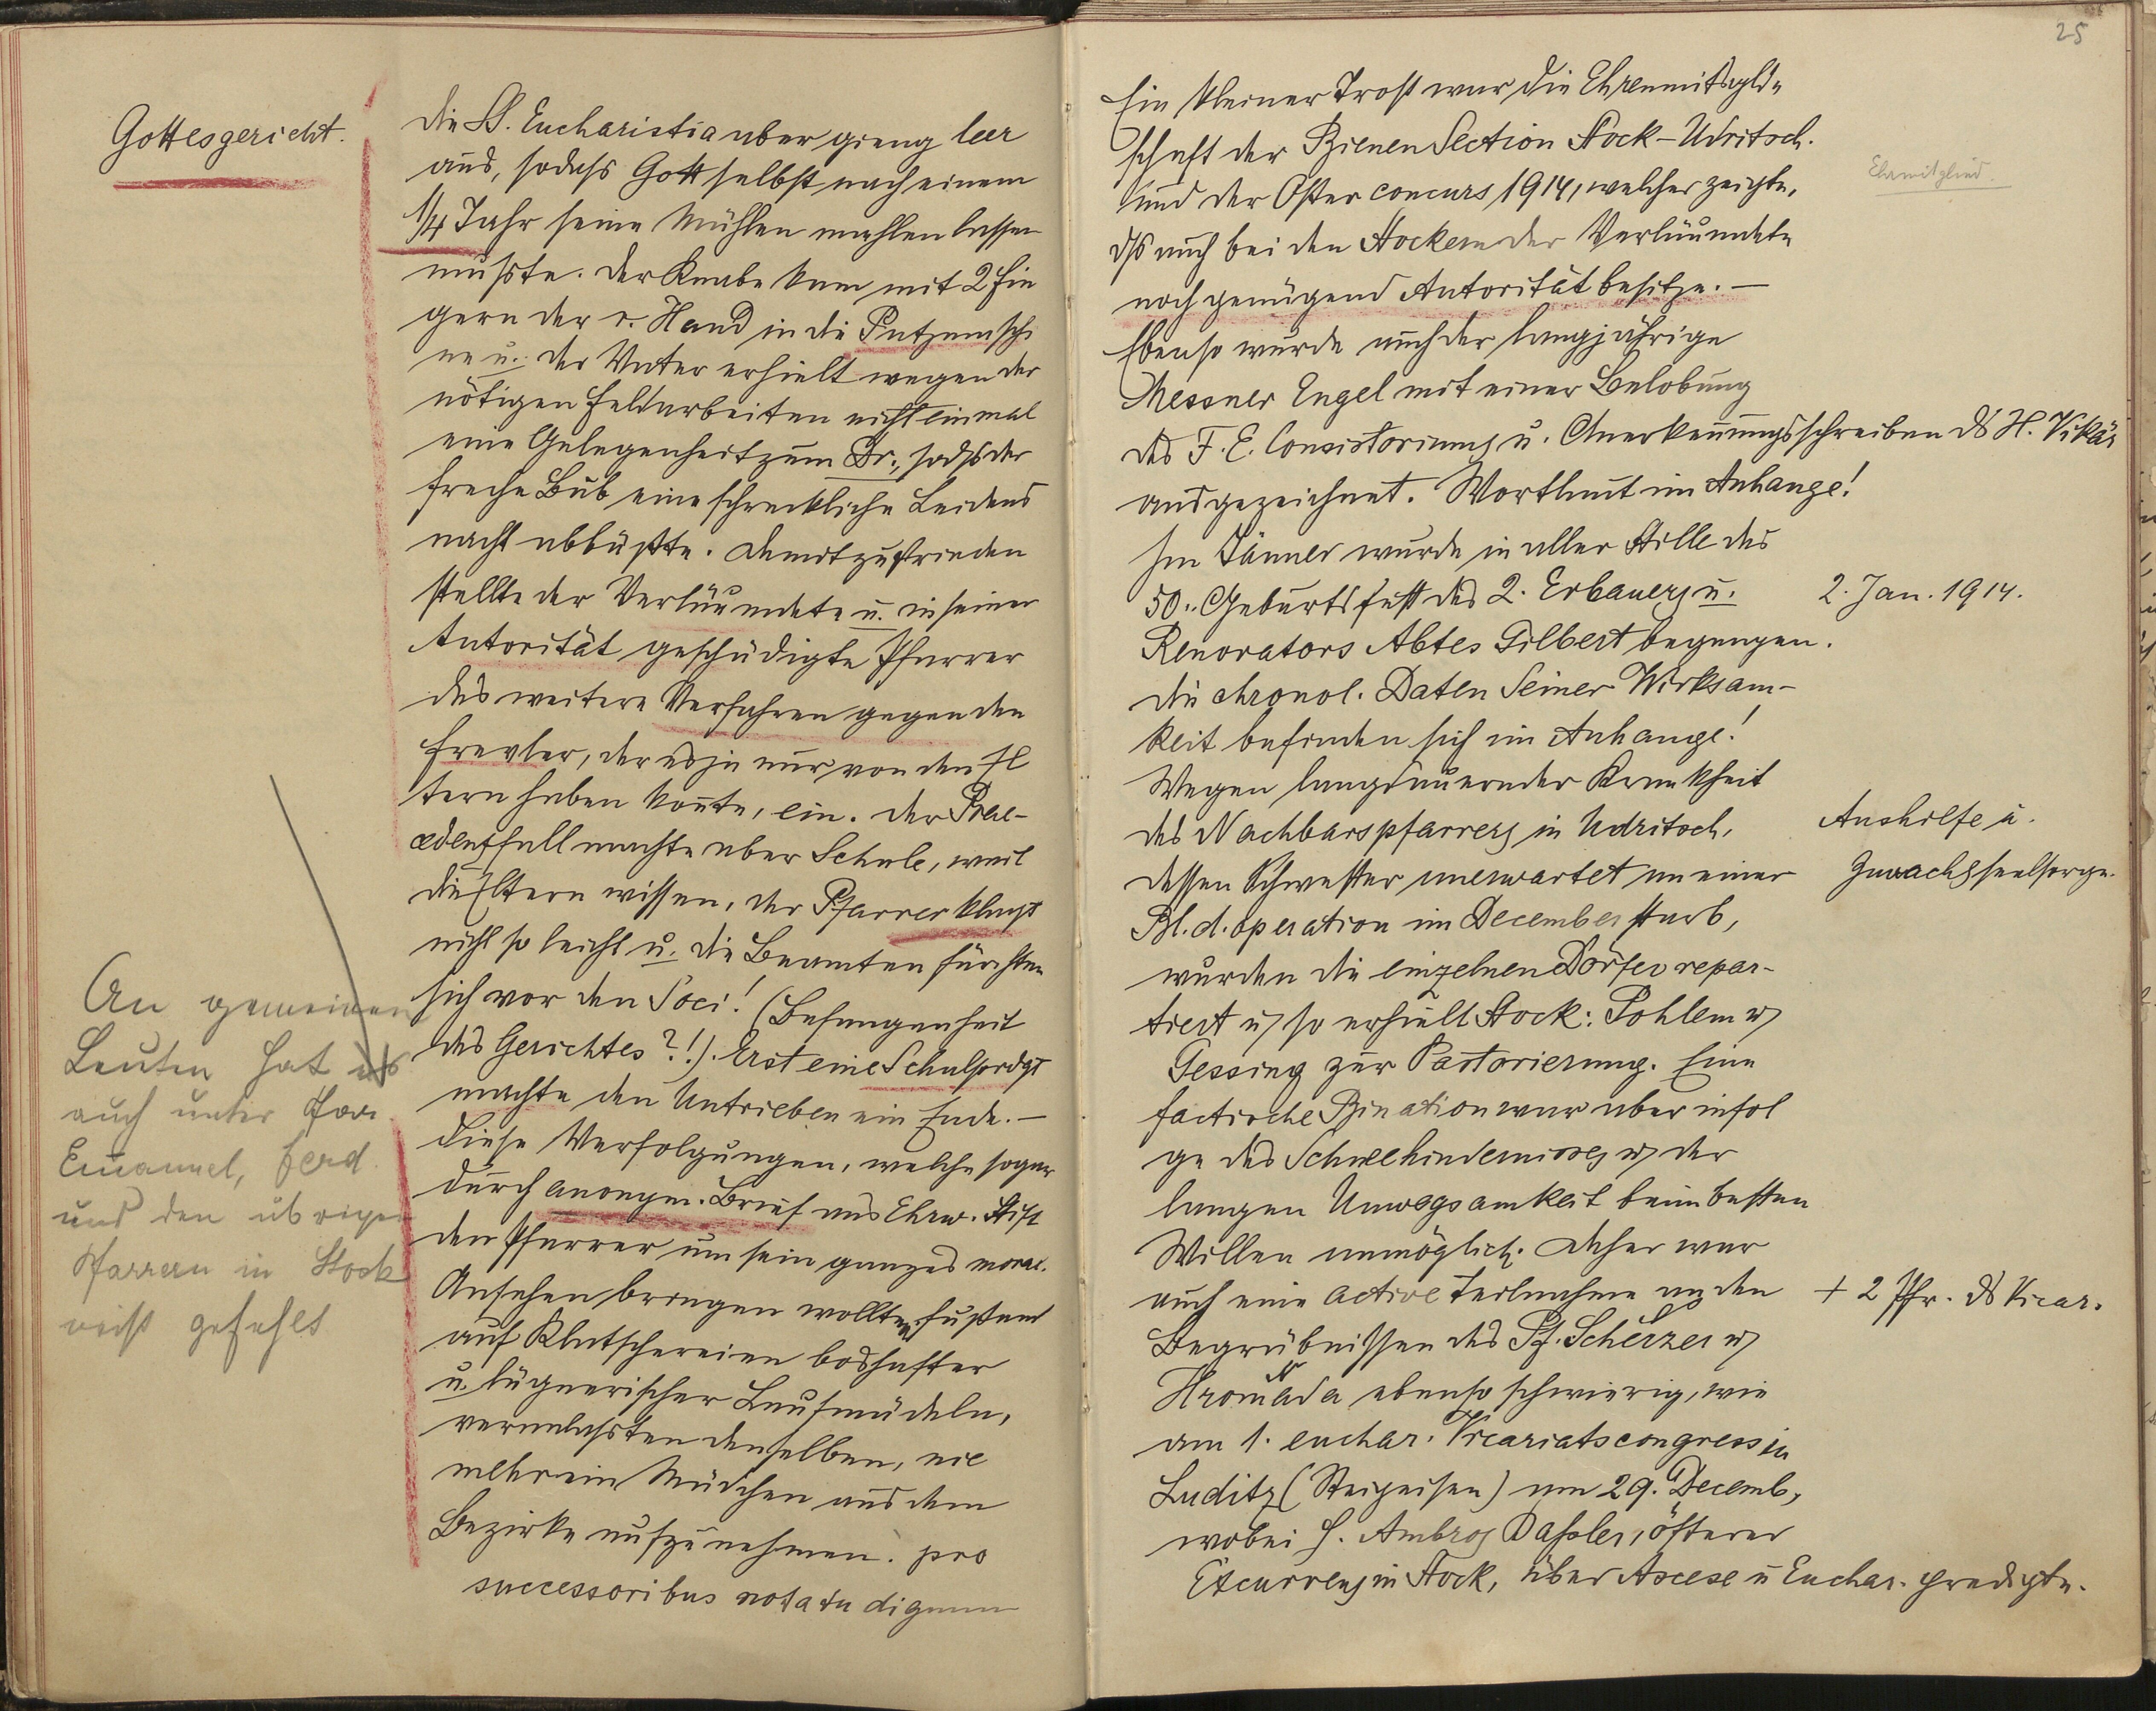 Gottesgericht.
die SS. Eucharistia aber gieng leer
aus, sodaß Gott selbst nach einem
1/4 Jahr seine Mühlen mahlen lassen
mußte. Der Knabe kam mit 2 Fin
gern der r. Hand in die Putzmaschi
ne u. der Vater erhielt wegen der
nötigen Feldarbeiten nicht einmal
eine Gelegenheit zum Dr., sodß der
freche Bub eine schreckliche Leidens
nacht abbüßte. Damit zufrieden
stellte der Verläumdete u. in seiner
Autorität geschädigte Pfarrer
das weitere Verfahren gegen den
Frevler, der es ja nur von den El
tern haben konte, ein. Der Prae-
cedenzfall machte aber Schule, weil
die Eltern wissen, der Pfarrer klagt
nicht so leicht u. die Beamten fürchten
sich vor den Soci! (Befangenheit
des Gerichtes?!). Erst eine Schulpredgt
machte den Untrieben ein Ende. —
Diese Verfolgungen, welche sogar
durch anonym. Brief ans Ehrw. Stift
den Pfarrer um sein ganzes moral.
Ansehen bringen wollten, fußend
auf Klatschereien boshafter
u. lügnerischer Laufmädeln,
veranlaßten denselben, nie
mehr ein Mädchen aus dem
Bezirke aufzunehmen. pro
successoribus notatu dignum
An gemeinen
Leuten hat es
auch unter Pfarr.
Emanuel, Ferd.
und den übrigen
Pfarrern in Stock
nicht gefehlt
25
Ein kleiner Trost war die Ehrenmitgld-
schaft der Bienen Section Stock-Udritsch.
und der Osterconcurs 1914, welcher zeigte,
dß auch bei den Stockern der Verläumdete
noch genügend Autorität besitze. —
Ehrmitglied.
Ebenso wurde auch der langjährige
Messner Engel mit einer Belobung
des F. E. Consistoriums u. Anerkennungsschreiben ds H. Vikärs
ausgezeichnet. Wortlaut im Anhange!
Im Jänner wurde in aller Stille das
50. Geburtsfest des 2. Erbauers u.
2. Jan. 1914.
Renovators Abtes Gilbert begangen.
die chronol. Daten Seiner Wirksam-
keit befinden sich im Anhange!
Wegen langdauernder Krankheit
des Nachbarspfarrers in Udritsch,
Aushilfe u.
dessen Schwester unerwartet an einer
Zuwachsseelsorge.
Bl. d. operation im December starb,
wurden die einzelnen Dörfer repar-
tiert u. so erhielt Stock: Pohlem u.
Gessing zur Pastorierung. Eine
factische Bination war aber infol
ge des Schneehindernisses u. der
langen Unwegsamkeit beim besten
Willen unmöglich. Daher war
auch eine active Teilnahme an den
+ 2 Pfr. ds Vicar.
Begräbnissen des Pf. Scherzer u.
Hromada ebenso schwierig, wie
am 1. euchar. Vicariatscongress in
Luditz (Steigeisen) am 29. Decemb,
wobei H. Ambros Daßler, öfterer
Excurrens in Stock, über Ascese u Euchar. predigte.